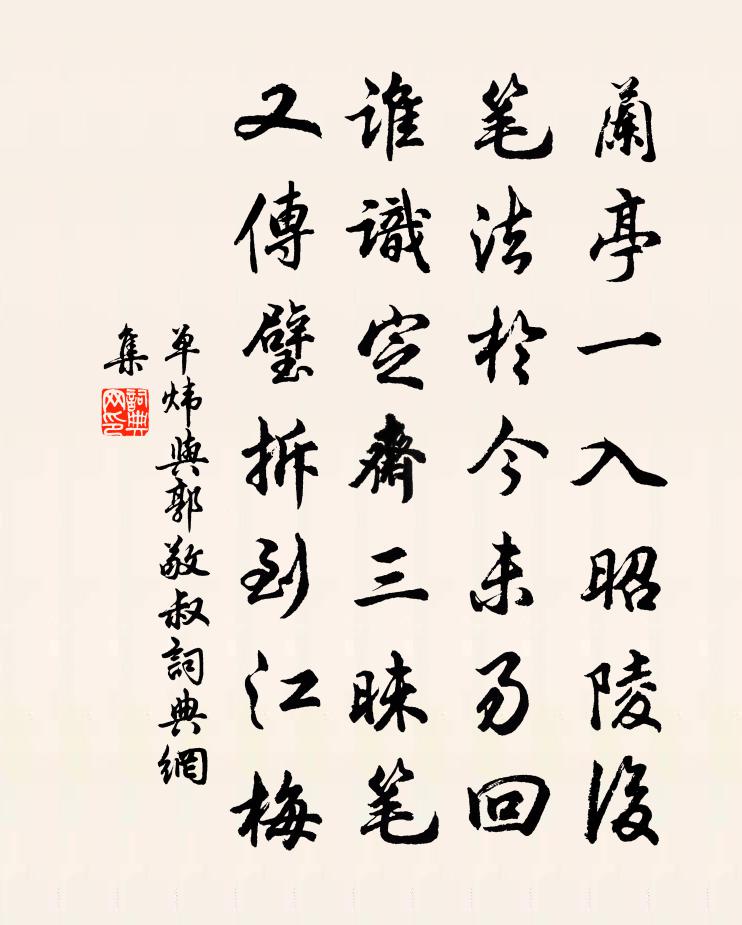 蘭亭一入昭陵後
笔法於今未易回
誰識定齋三昧笔
又傳壁拆到江梅
单炜與郭敬叔詞典網
集
詞典
网印